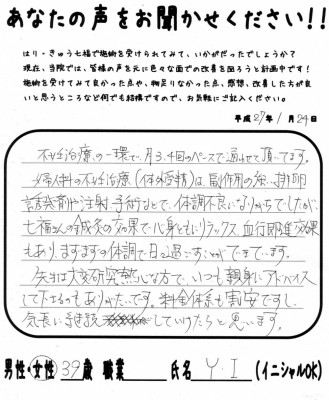 あなたの声をお聞かせください!!
はり・きゅう七福で施術を受けられてみて、いかがだったでしょうか?
現在、当院では、皆様の声を元に色々な面での改善を図ろうと計画中です!
施術を受けてみて良かった点や、物足りなかった点、感想、改善した方が良
いと思うところなど何でも結構ですので、お気軽にご記入ください。
平成27年1月29日
不妊治療の一環で、月3,4回のペースで通わせて頂いてます。
婦人科の不妊治療(体外受精)は、副作用の強い排卵
誘発剤や注射・手術などで、体調不良になりがちでしたが、
七福さんの鍼灸の効果で心身ともにリラックス、血行促進効果
もあり、まずまずの体調で日々過ごすことができています。
先生は大変研究熱心な方で、いつも親身にアドバイス
して下さるのもありがたいです。料金体系も割安ですし、
気長に継続していけたらと思います。
男性・女性 39歳 職業 氏名 Y.I (イニシャルOK)